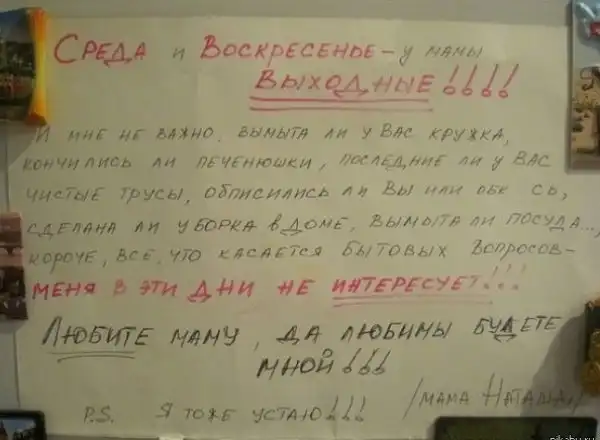 Среда и Воскресенье – у мамы
выходные!!!!
И мне не важно, вымыта ли у вас кружка,
кончились ли печенюшки, последние ли у вас
чистые трусы, описились ли вы или обк сь,
сделана ли уборка в доме, вымыта ли посуда...,
короче, всё, что касается бытовых вопросов–
меня в эти дни не интересует!!!
Любите маму, да любимы будете
мной!!!
/мама Наташа/
P.S. Я тоже устаю!!!
pikabu.ru